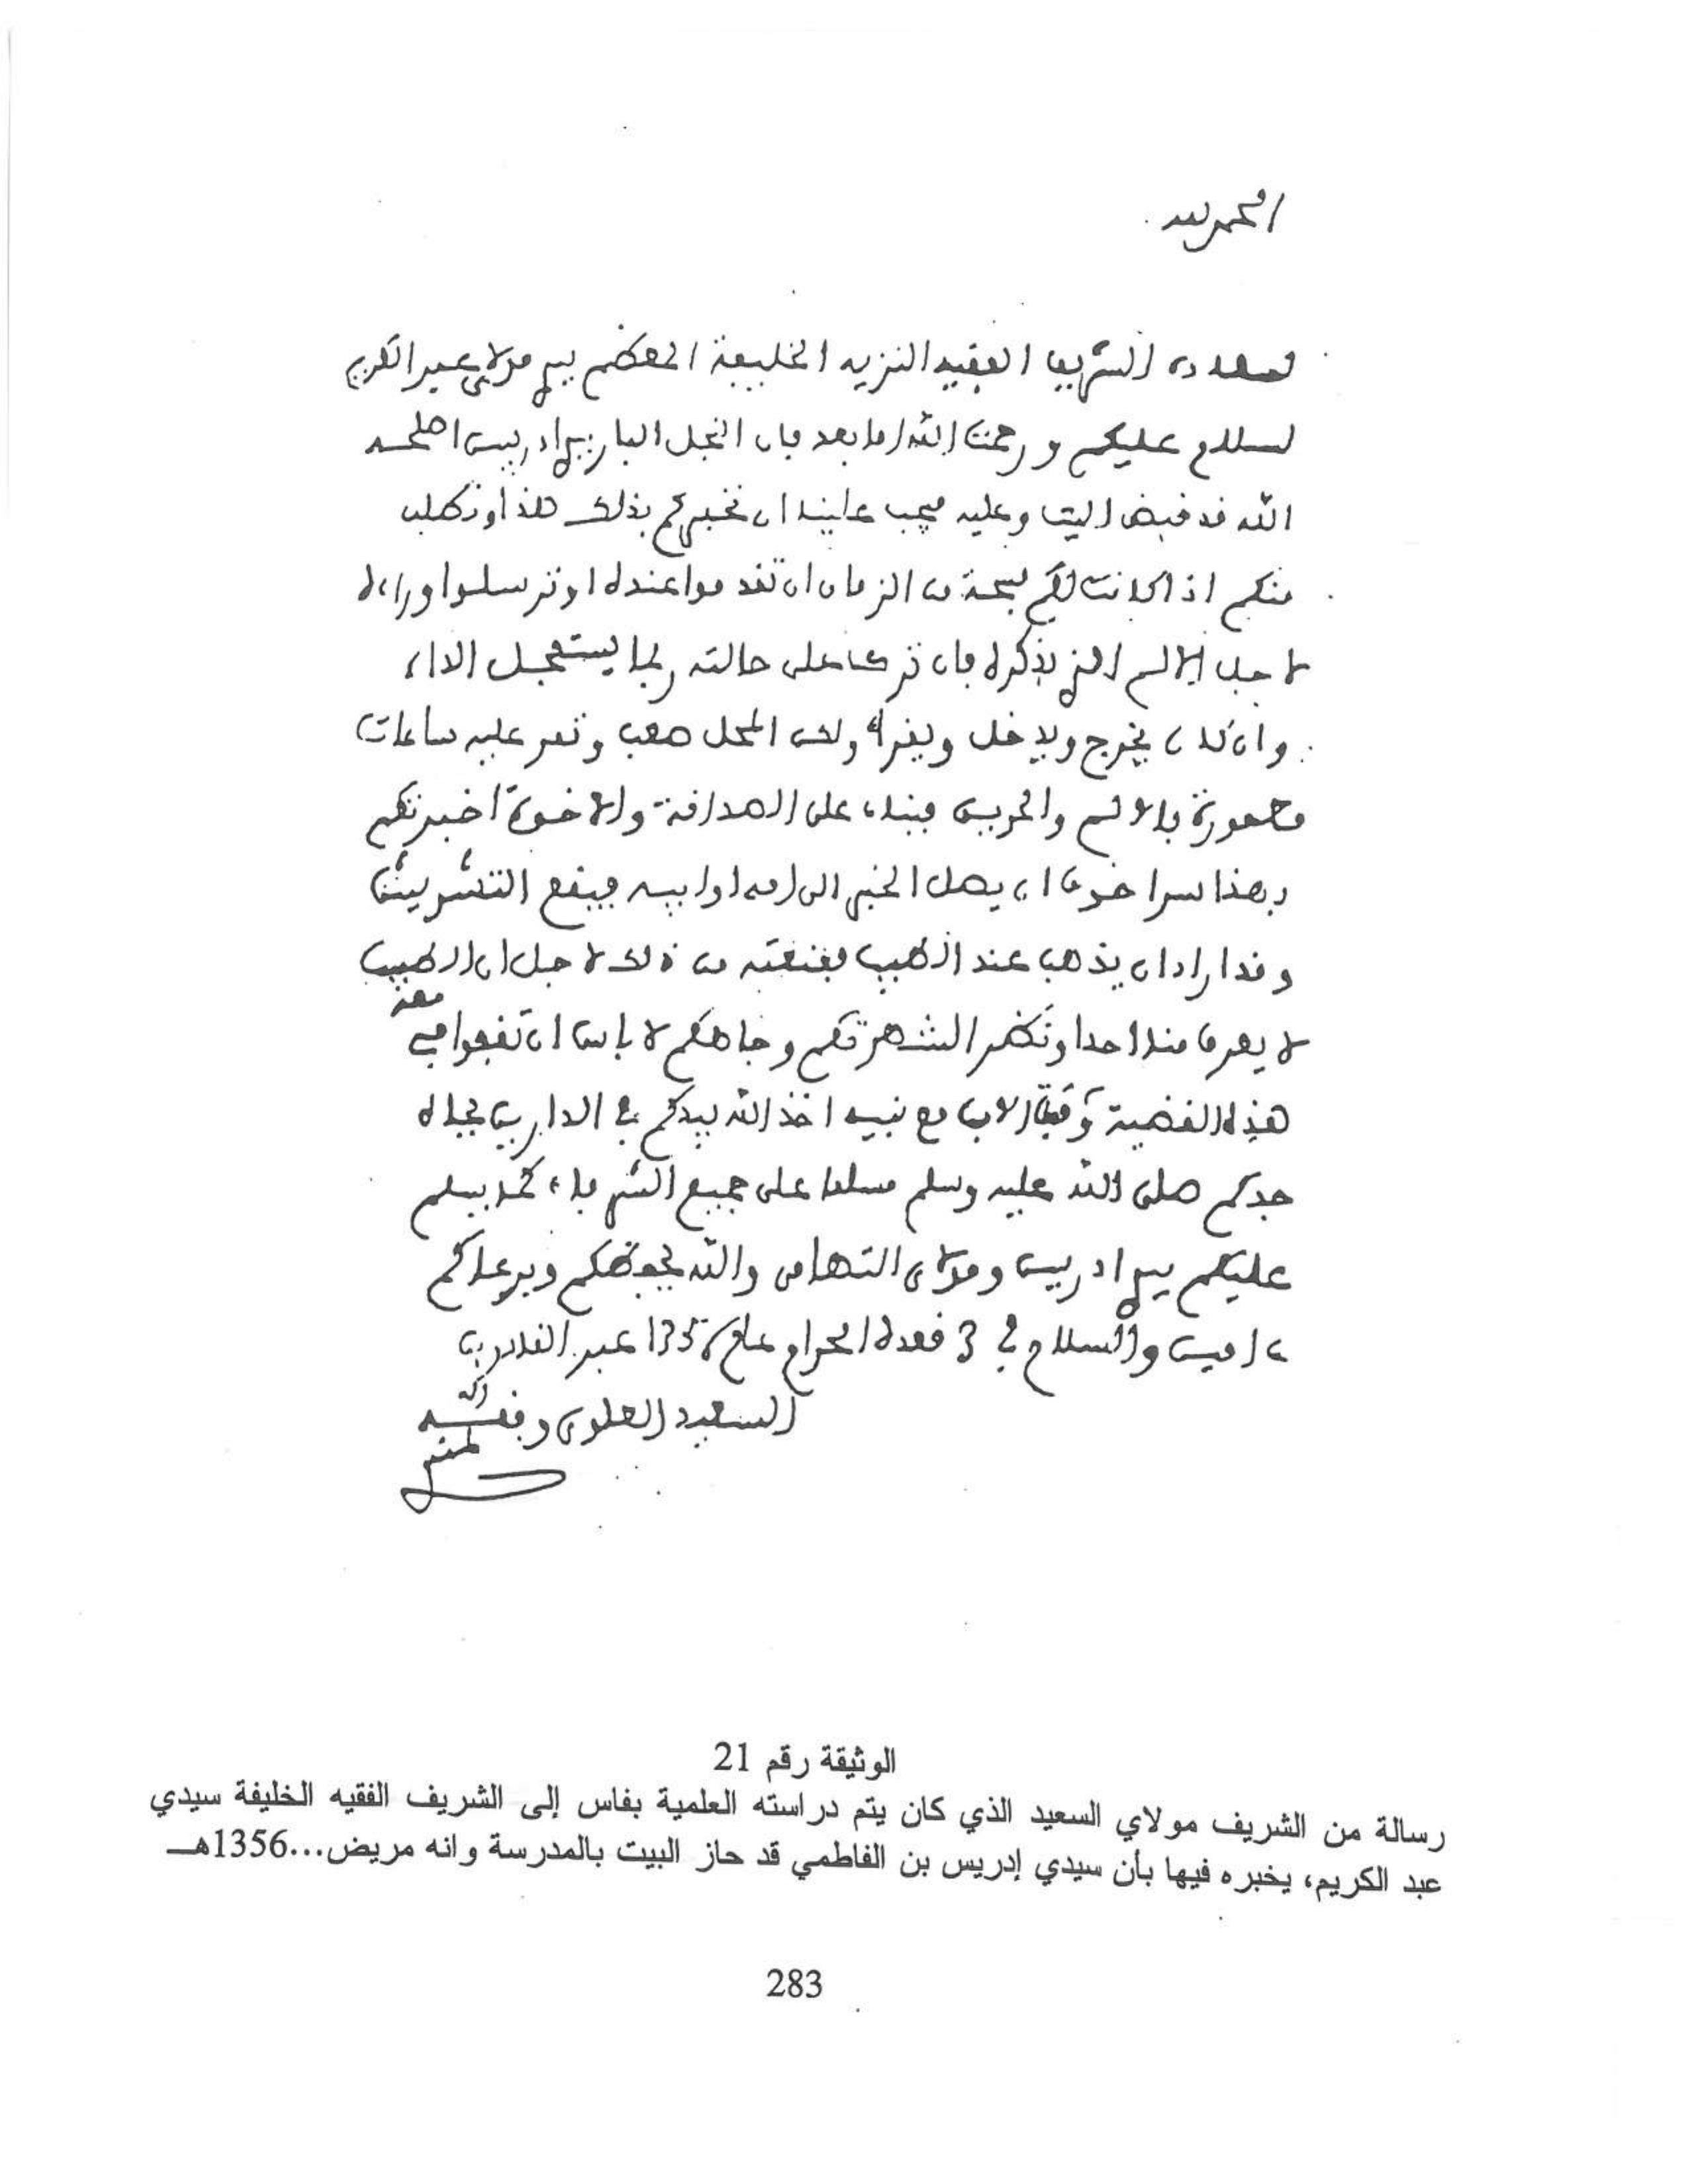 الحمد لله
لسعادة الشريف الفقيه النزيه الخليفة المعظم سيدي مولاي عبد الكريم
لسلام عليكم ورحمت الله اما بعد فان النجل البار سيدي ادريس اصلحه
الله قد قبض البيت وعليه فيجب علينا ان نخبركم بذلك هذا ونطلب
منكم اذا كانت لكم فسحة من الزمان ان تقدموا عنده او ترسلوا وراءه
لاجل الالم الذي يذكره فان تركها على حالته ربما يستعجل الداء
وان كان يخرج ويدخل ويقرأ ولكن المحل صعب وتمر عليه ساعات
بالالم والحريق فبناء على الصداقة والاخوة اخبرتكم
بهذا سرا خوفا ان يصل الخبر الى امه او ابيه فيقع التشويش
وقد اراد ان يذهب عند الطبيب فمنعته من ذلك لاجل ان الطبيب
لا يعرف منا احدا ونظرا لشهرتكم وجاهكم لا باس ان تقفوا معه في
هذه القضية الاب مع بنيه اخذ الله بيدكم في الدارين بجاه
جدكم صلى الله عليه وسلم مسلما على جميع الشرفاء كما يسلم
عليكم سيدي ادريس ومولاي التهامي والله يحفظكم ويرعاكم
ءامين والسلام في 3 قعدة الحرام عام 1356 عبد القادر بن
السعيد العلوي وفقه الله
بمنه
الوثيقة رقم 21
رسالة من الشريف مولاي السعيد الذي كان يتم دراسته العلمية بفاس إلى الشريف الفقيه الخليفة سيدي
عبد الكريم، يخبره فيها بأن سيدي إدريس بن الفاطمي قد حاز البيت بالمدرسة وانه مريض...1356هـ
283